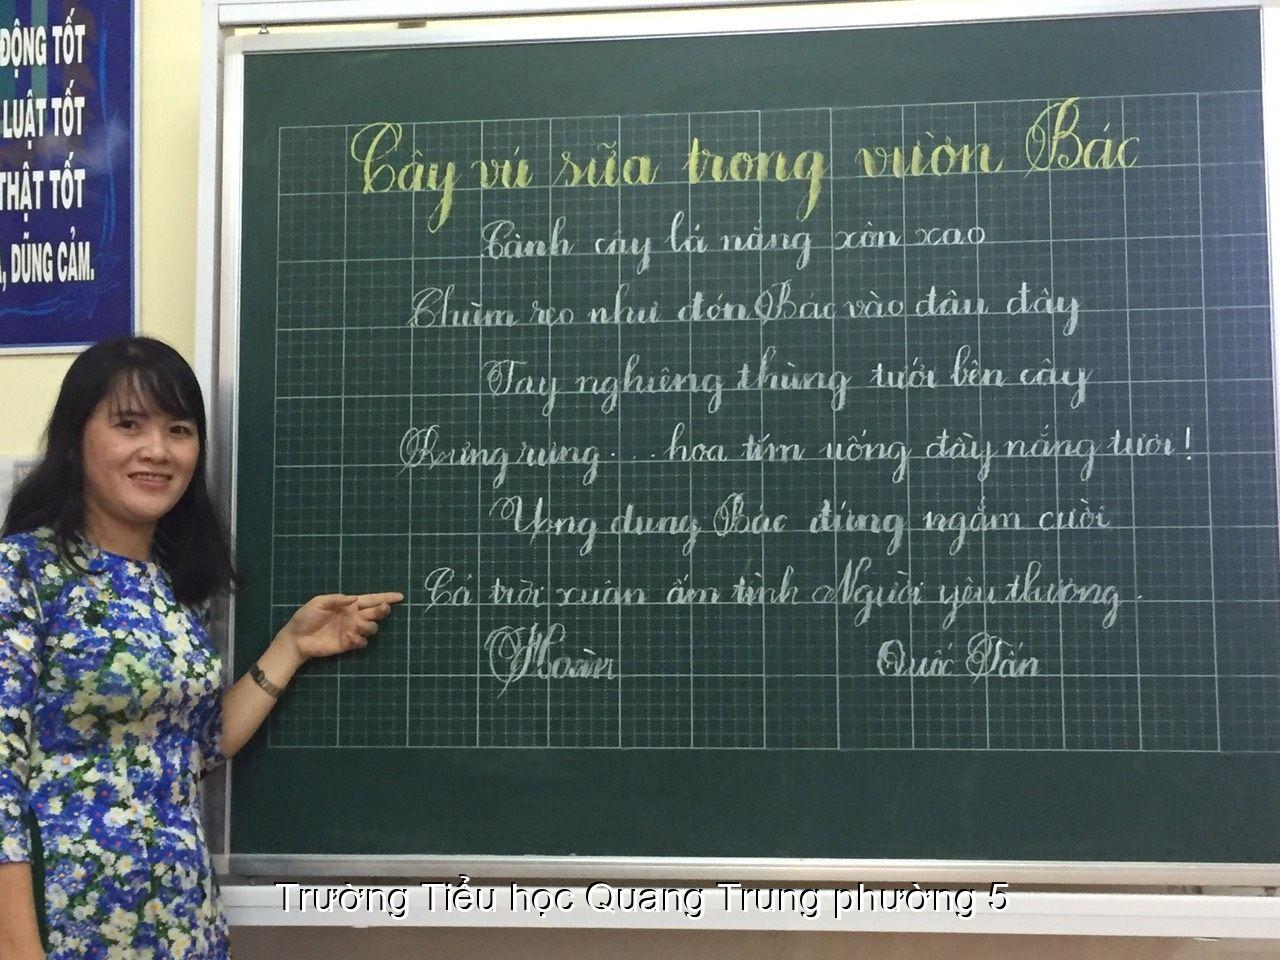 ĐỘNG TỐT
LUẬT TỐT
THẬT TỐT
, DŨNG CẢM.
Cây vú sữa trong vườn Bác
Cành cây lá nắng xôn xao
Chùm reo như đón Bác vào đâu đây
Tay nghiêng thùng tưới bên cây
Rưng rưng... hoa tím uống đầy nắng tươi!
Ung dung Bác đứng ngắm cười
Cả trời xuân ấm tình Người yêu thương.
Hoàn Quốc Tấn
Trường Tiểu học Quang Trung phường 5